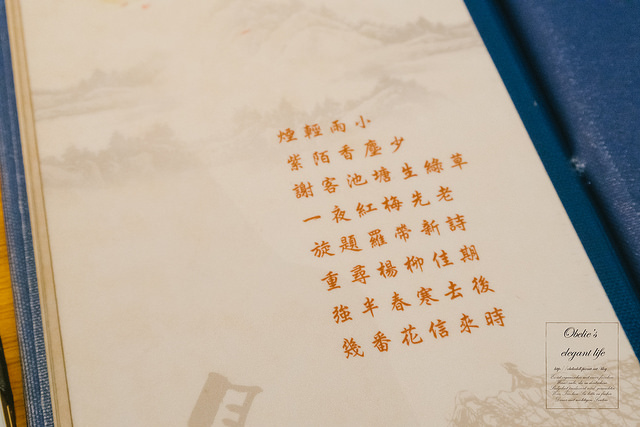 煙輕雨小
紫陌香塵少
謝客池塘生綠草
一夜紅梅先老
旋題羅帶新詩
重尋楊柳佳期
強半春寒去後
幾番花信來時
Obelie's
elegant life